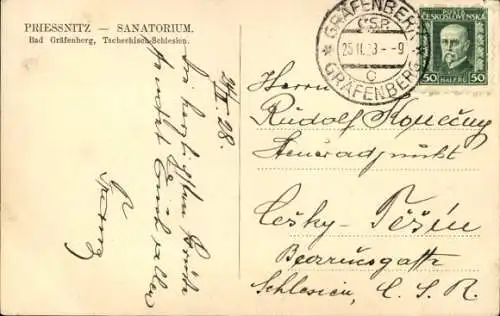 PRIESSNITZ — SANATORIUM.
Bad Gräfenberg, Tschechisch-Schlesien.
24/II 28.
Die herzlichsten Grüsse
sendet Euch allen
Franz
GRÄFENBERG
ČSP.
25.II.28 - -9
C
GRÄFENBERG
POŠTA
ČESKOSLOVENSKÁ
50 HALÉŘŮ 50
Herrn
Rudolf Konečny
Steueradjunkt
Česky-Těšín
Schlesien, Č. S. R.